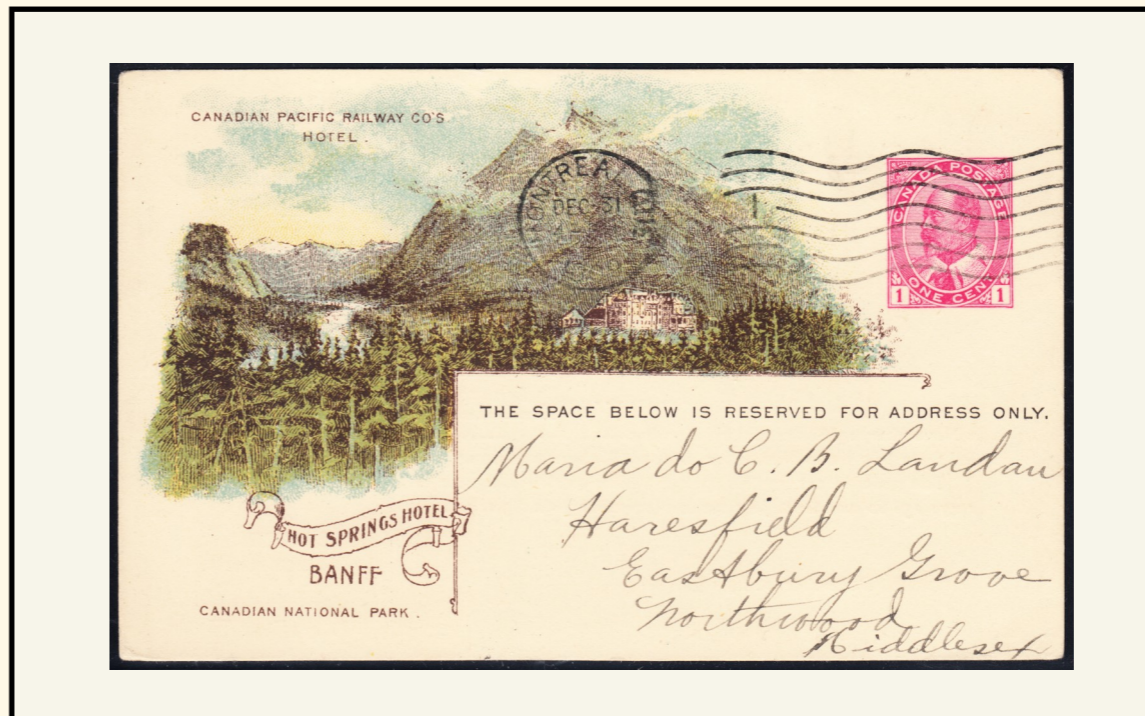 CANADIAN PACIFIC RAILWAY CO'S
HOTEL.
MONTREAL QUE
DEC 31
CANADA POSTAGE
ONE CENT
1 1
THE SPACE BELOW IS RESERVED FOR ADDRESS ONLY.
Maria do C. B. Landau
Haresfield
Eastbury Grove
Northwood
Middlesex
HOT SPRINGS HOTEL
BANFF
CANADIAN NATIONAL PARK.